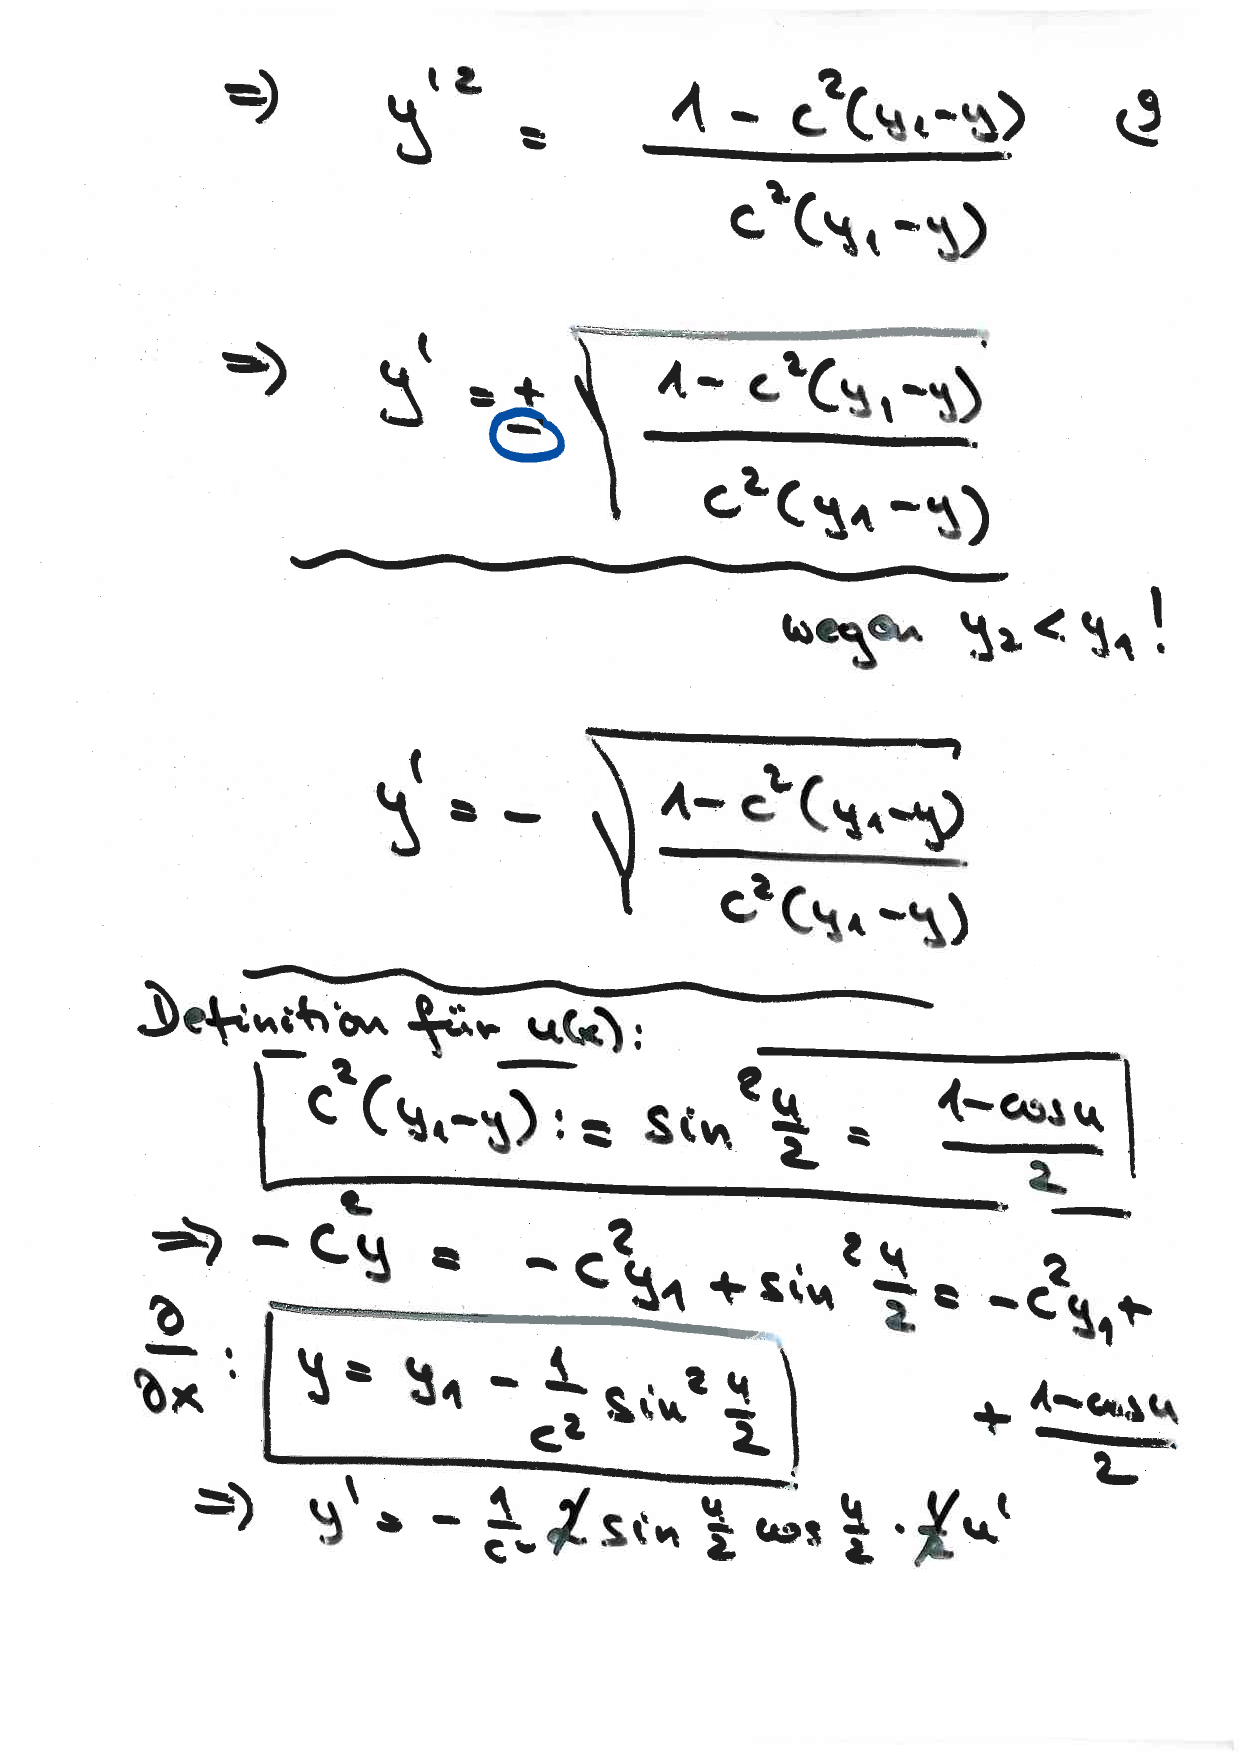 ⇒ y'² = (1 - c²(y₁-y)) / (c²(y₁-y)) 9
⇒ y' = ± √((1 - c²(y₁-y)) / (c²(y₁-y)))
wegen y₂ < y₁!
y' = - √((1 - c²(y₁-y)) / (c²(y₁-y)))
Definition für u(x):
c²(y₁-y) := sin² u/2 = (1-cos u)/2
⇒ - c²y = - c²y₁ + sin² u/2 = - c²y₁ +
+ (1-cos u)/2
∂/∂x : y = y₁ - 1/c² sin² u/2
⇒ y' = - 1/c² 2 sin u/2 cos u/2 · 1/2 u'